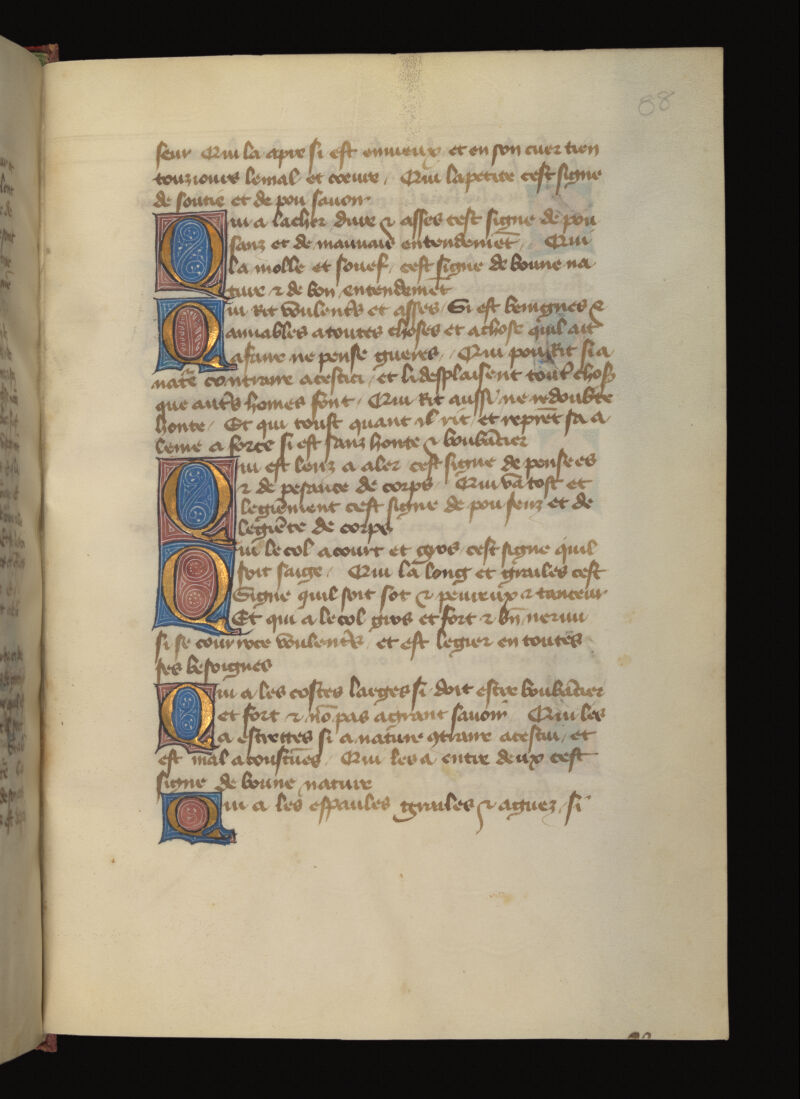 88
seur Qui la apre si est enuieux et en son cuer tien
touziours lemal et coeuure / Qui lapetite cest signe
de soutie et de pou sauoir
Qui a lacher dure ⁊ asses cest signe de pou
sanz et de mauuaix entendemēt / Qui
la molle et souef / cest signe de bonne na
ture ⁊ de bon entendemēt
Qui Rit voulentˢs et asses / Si est benignes ⁊
amiables atoutes choses et achose quil ait
afaire ne pense gueres / Qui pou Rit si a
natˢe contraire acestui / et li desplaisent toutˢ chosˢ
que autˢs homes font / Qui Rit aussi ne redoubte
honte / Et qui toust quant il rit et reprēt sa a
leine a force si est sanz honte ⁊ boubācier
Qui est lenz a aler cest signe de pensees
⁊ de pesance de corps Qui va tost et
legieṁent cest signe de pou senz et de
legiēte de corps
Qui le col acourt et gros cest signe quil
soit saige / Qui la long et grailes cest
Signe quil soit sot ⁊ peureux ⁊ tanceur
Et qui a le col gros et fort ⁊ bn̄ neruu
si se courroce voulentˢs / et est legier en toutes
ses besoignes
Qui a les costes larges si doit estre boubācier
et fort ⁊ nō pas agrant sauoir Qui les
a estrettes si a nature 9traire acestui / et
est mal acoustūes / Qui les a entre deux cest
signe de bonne nature
Qui a les espaules grailes ⁊ aguez / si